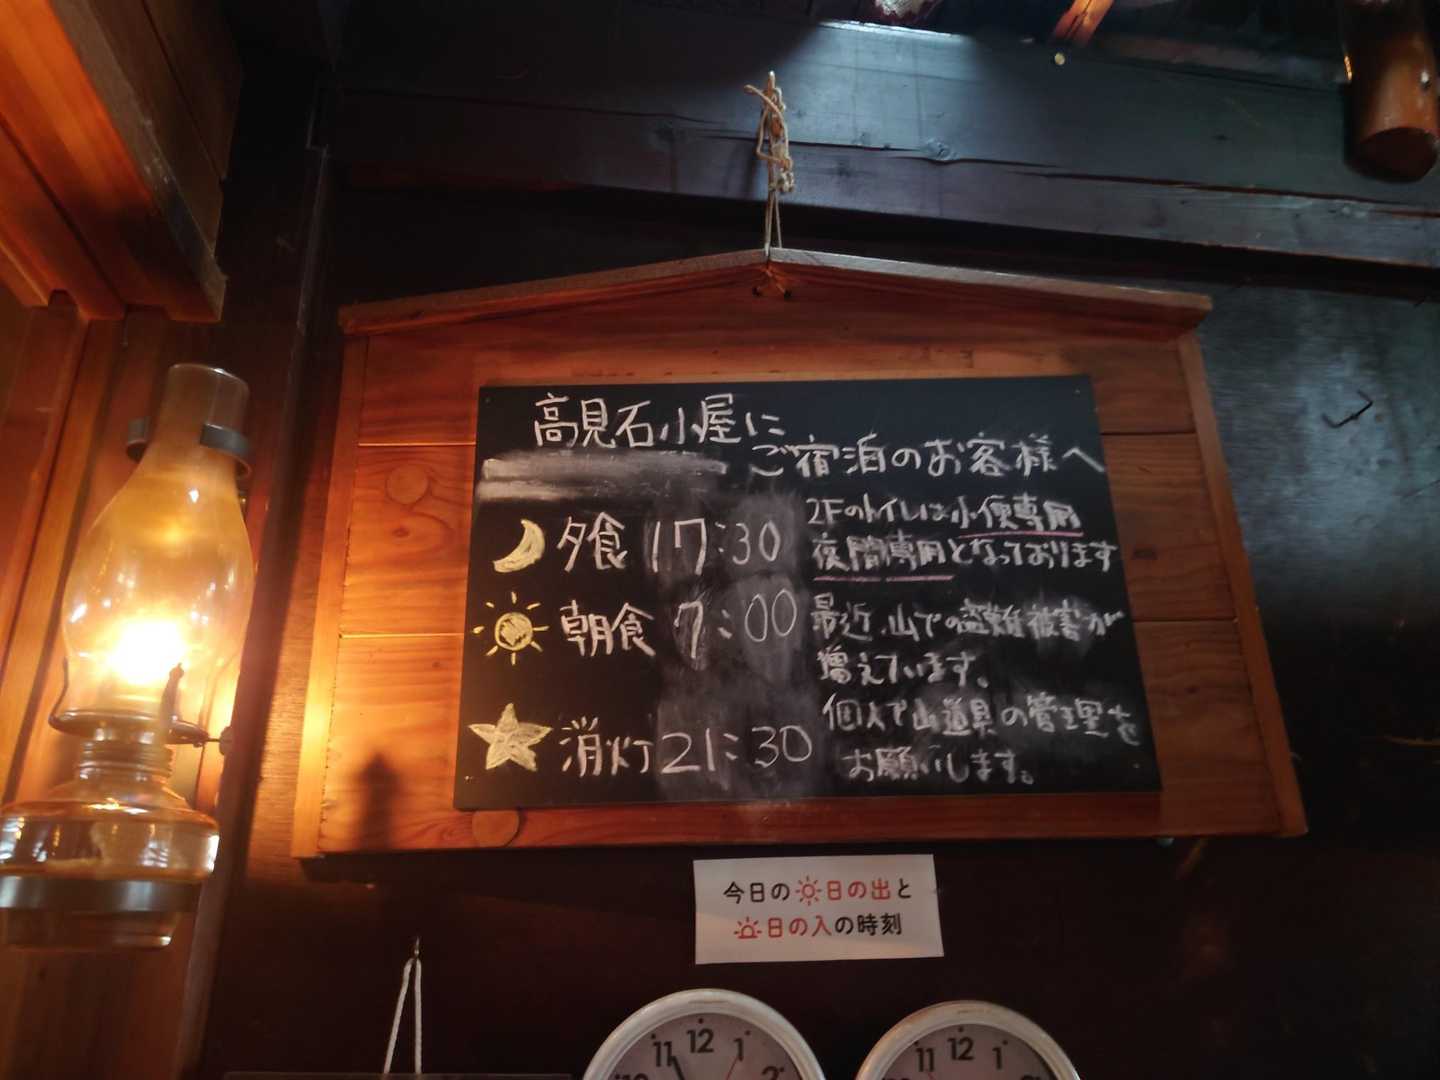 高見石小屋に
ご宿泊のお客様へ
夕食 17:30
朝食 7:00
消灯 21:30
2Fのトイレは小便専用
夜間専用となっております
最近、山での盗難被害が
増えています。
個人で山道具の管理を
お願いします。
今日の日の出と
日の入の時刻
11 12 1
10 2
11 12 1